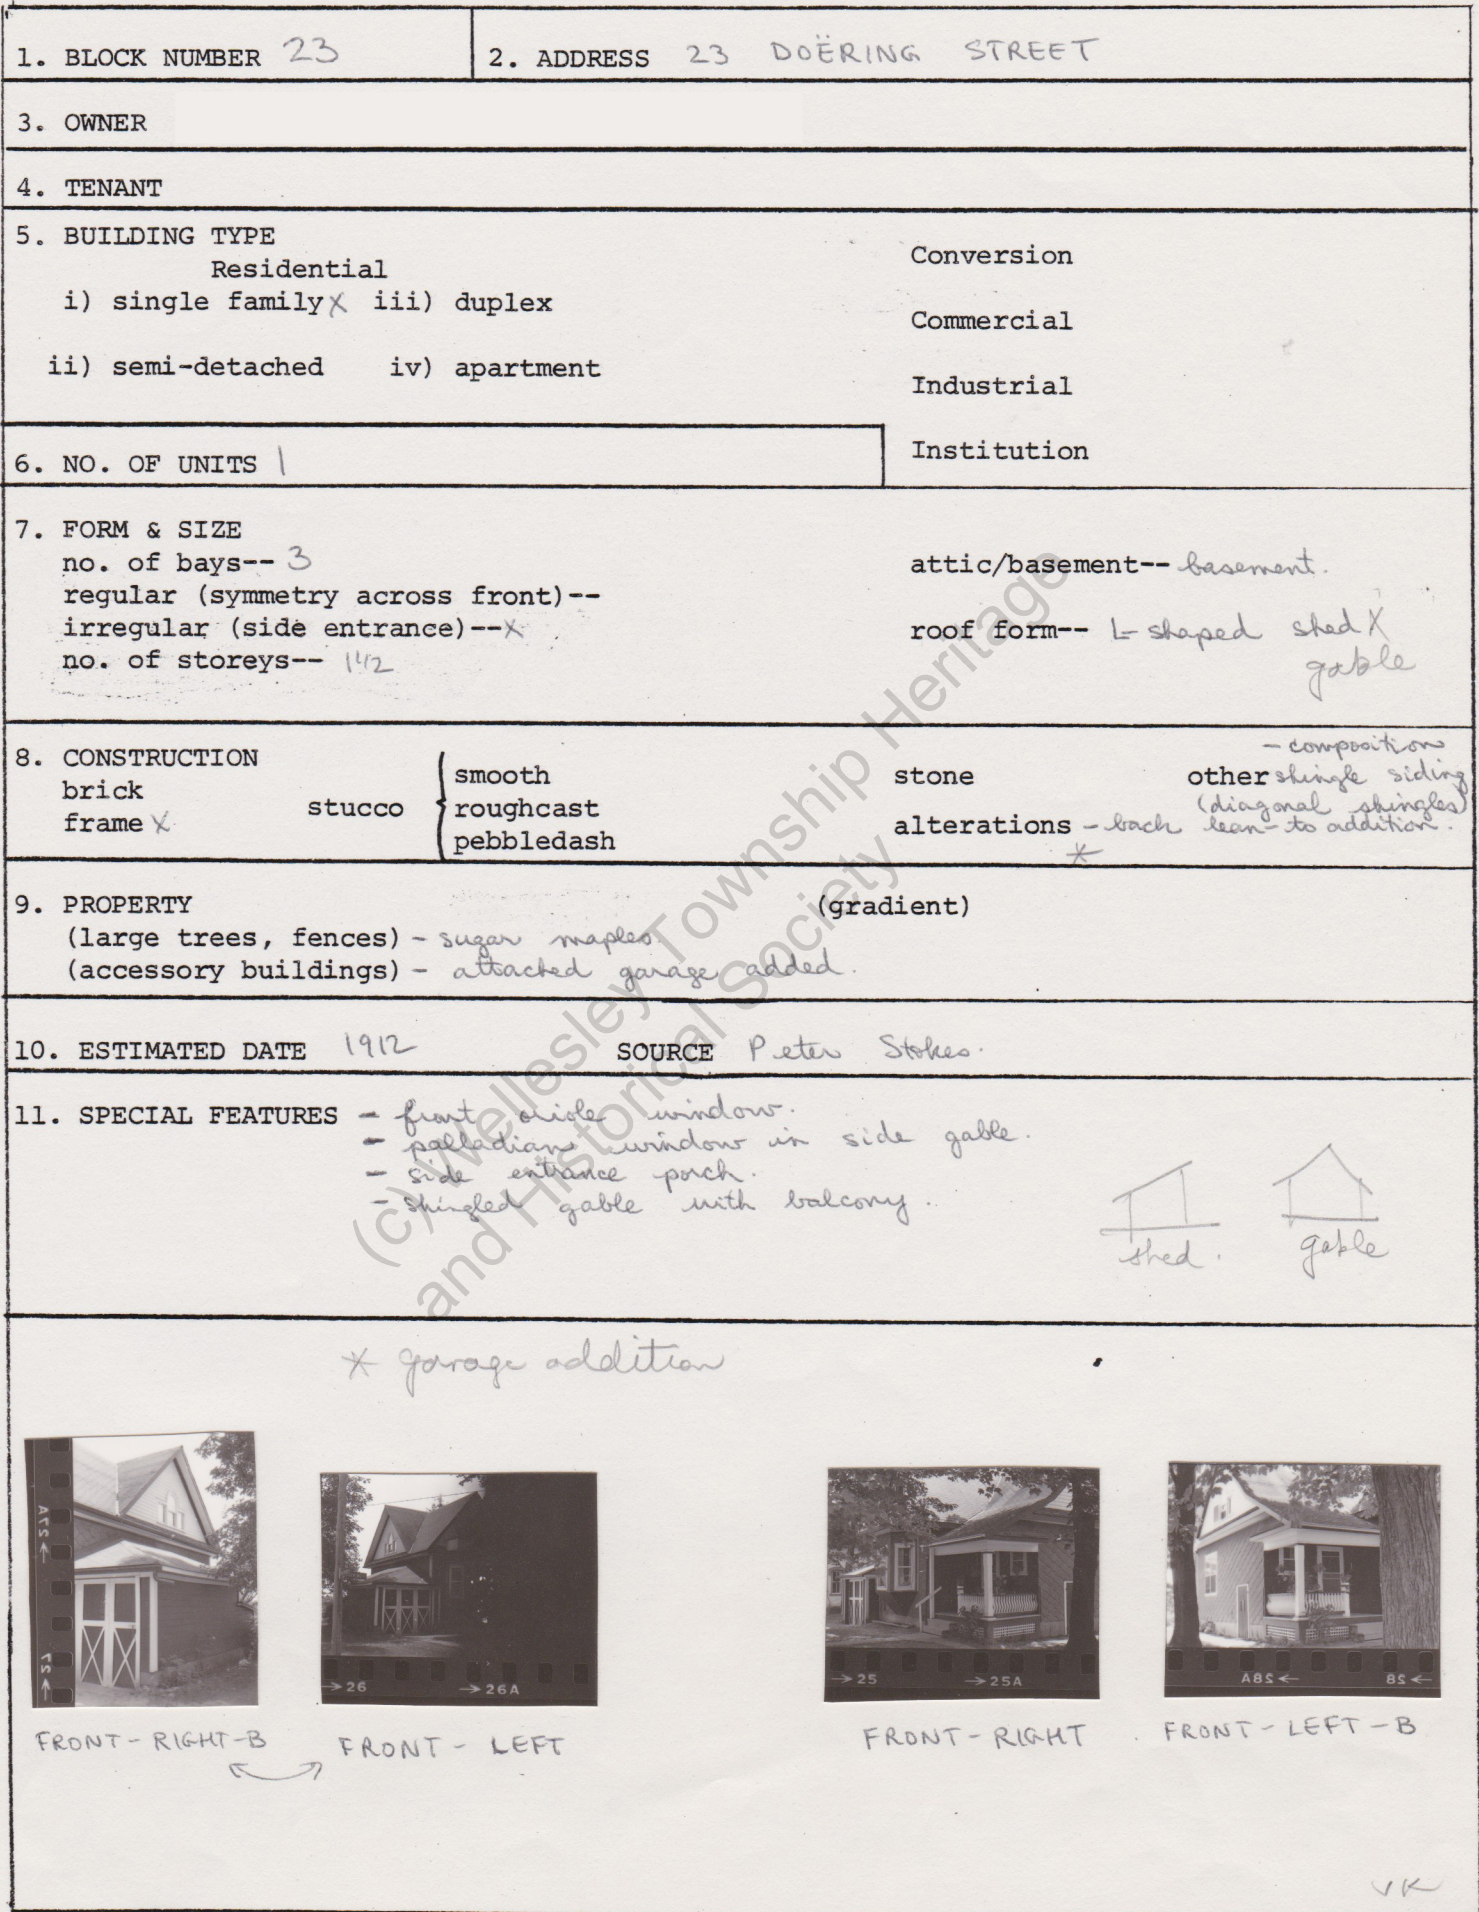 1. BLOCK NUMBER 23
2. ADDRESS 23 DOËRING STREET
3. OWNER
4. TENANT
5. BUILDING TYPE
Residential
i) single family X iii) duplex
ii) semi-detached iv) apartment
Conversion
Commercial
Industrial
Institution
6. NO. OF UNITS 1
7. FORM & SIZE
no. of bays-- 3
regular (symmetry across front)--
irregular (side entrance)--X
no. of storeys-- 1 1/2
attic/basement-- basement.
roof form-- L-shaped shed X
gable
8. CONSTRUCTION
brick
frame X
stucco
smooth
roughcast
pebbledash
stone
other - composition
shingle siding
(diagonal shingles)
alterations - back lean-to addition.
*
9. PROPERTY (gradient)
(large trees, fences) - sugar maples
(accessory buildings) - attached garage added.
10. ESTIMATED DATE 1912 SOURCE Peter Stokes.
11. SPECIAL FEATURES - front oriole window.
- palladian window in side gable.
- side entrance porch.
- shingled gable with balcony.
shed.
gable
* garage addition
(c) Wellesley Township Heritage
and Historical Society
→27 →27A
→26 →26A
→25 →25A
→28 →28A
FRONT-RIGHT-B
FRONT - LEFT
FRONT-RIGHT
FRONT-LEFT-B
VK